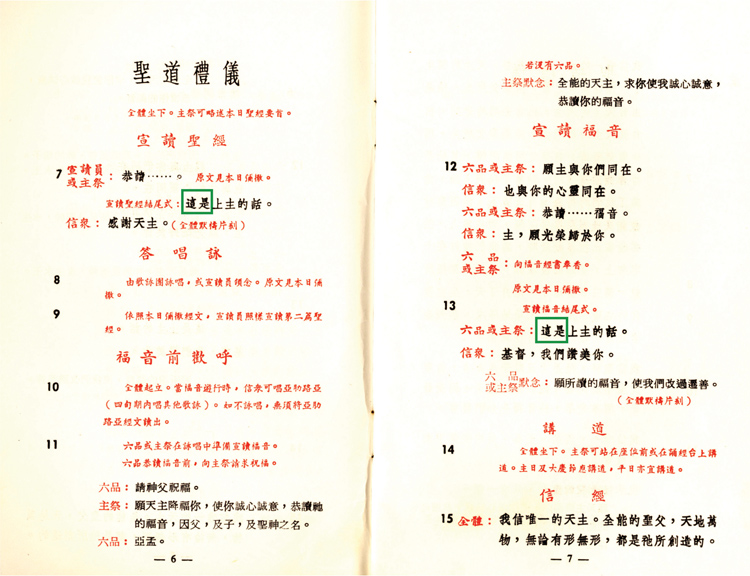 聖道禮儀
全體坐下。主祭可略述本日聖經要旨。
宣讀聖經
7 宣讀員或主祭：恭讀⋯⋯。 原文見本日彌撒。
宣讀聖經結尾式：這是上主的話。
信衆：感謝天主。(全體默禱片刻)
答唱詠
8 由歌詠團詠唱，或宣讀員領念。原文見本日彌
撒。
9 依照本日彌撒經文，宣讀員照樣宣讀第二篇聖
經。
福音前歡呼
10 全體起立。當福音遊行時，信衆可唱亞肋路亞
(四旬期內唱其他歌詠)。如不詠唱，無須將亞肋
路亞經文讀出。
11 六品或主祭在詠唱中準備宣讀福音。
六品恭讀福音前，向主祭請求祝福。
六品：請神父祝福。
主祭：願天主降福你，使你誠心誠意，恭讀祂
的福音，因父，及子，及聖神之名。
六品：亞孟。
— 6 —
若沒有六品。
主祭默念：全能的天主，求你使我誠心誠意，
恭讀你的福音。
宣讀福音
12 六品或主祭：願主與你們同在。
信衆：也與你的心靈同在。
六品或主祭：恭讀⋯⋯福音。
信衆：主，願光榮歸於你。
六品或主祭：向福音經書奉香。
原文見本日彌撒。
13 宣讀福音結尾式。
六品或主祭：這是上主的話。
信衆：基督，我們讚美你。
六品或主祭默念：願所讀的福音，使我們改過遷善。
(全體默禱片刻)
講道
14 全體坐下。主祭可站在座位前或在誦經台上講
道。主日及大慶節應講道，平日亦宜講道。
信經
15 全體：我信唯一的天主。全能的聖父，天地萬
物，無論有形無形，都是祂所創造的。
— 7 —